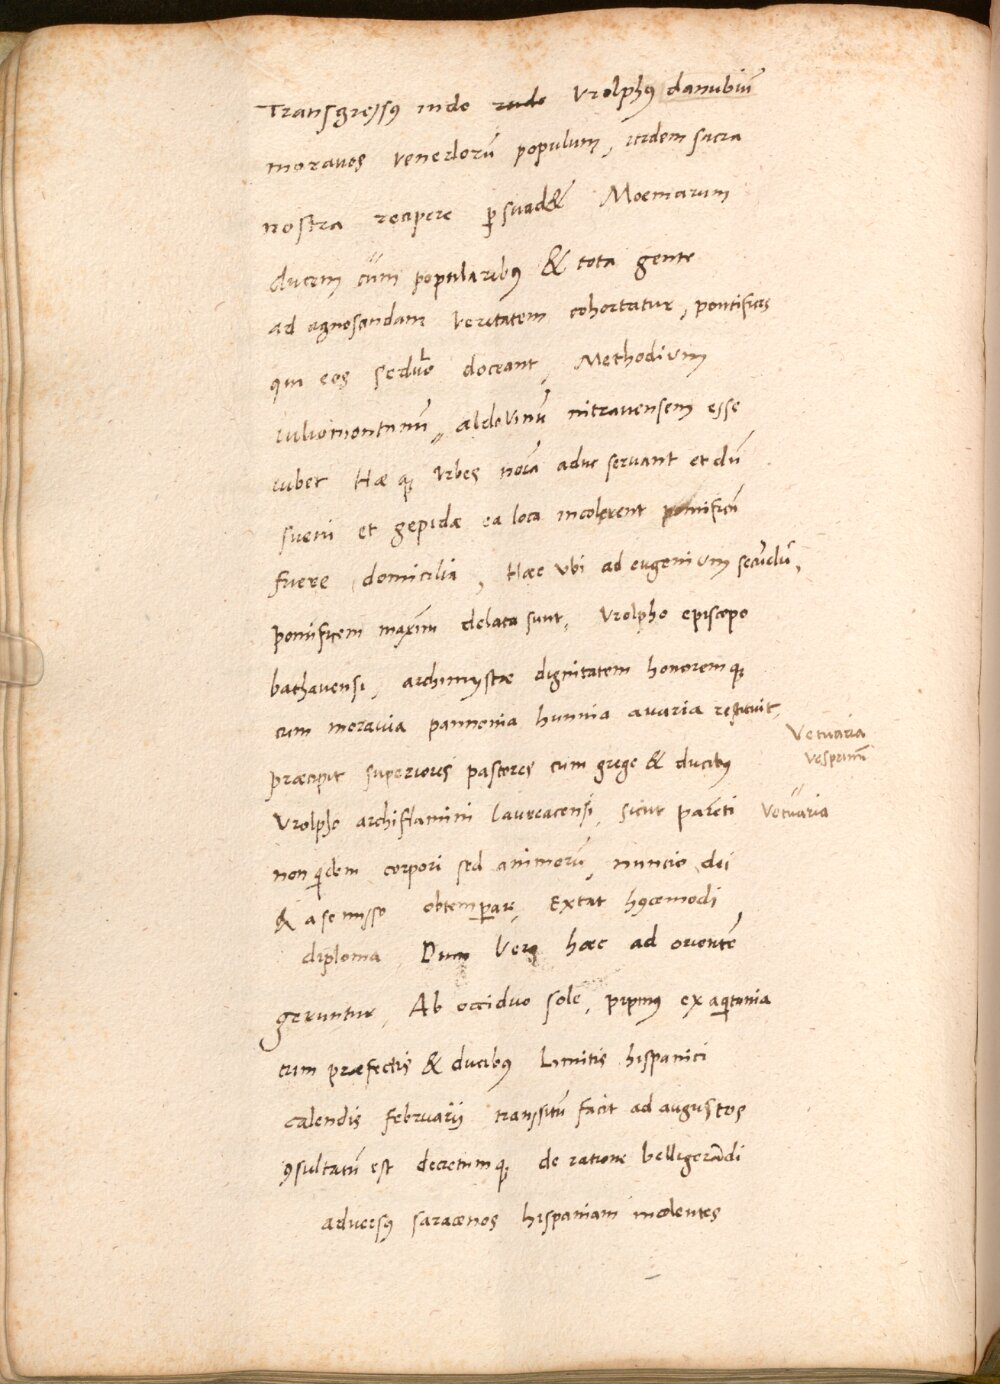 Transgressꝰ inde Vrolphꝰ danubiū
moravos venedorū populum, itidem sacra
nostra recipere ꝑsuad& Moemarum
ducem cūm popularibꝰ & tota gente
ad agnosandam veritatem cohortatur, pontifices
qui eos sedulo doceant, Methodium
iuliomontanū, aldovinū nitravensem esse
iubet Hæ qꝫ Vrbes adhuc servant et dū
suevi et gepidæ ea loca incolerent pontificū
fuere domicilia, Hæc vbi ad eugenium secūdū,
pontificem maximū delata sunt, Vrolpho episcopo
bathavensi, archimystæ dignitatem honoremqꝫ
cum moravia pannonia hunnia avaria restituit,
præcipit superiores pastores cum grege & ducibꝰ
Vetuaria
vesprimū
Vrolpho archiflamini laureacensi, sicut parēti
Vetuaria
non qidem corpori sed animorū, nuncio dei
& a se misso obtemperare, Extat hꝰcemodi
diploma, Dum Vero hæc ad orientē
geruntur, Ab occiduo sole, pipinꝰ ex aqitania
cum præfectis & ducibꝰ Limitis hispanici
calendis februarij transitū facit ad augustos
ꝯsultatū est decretumqꝫ de ratione belligerādi
adversꝰ saracenos hispaniam incolentes